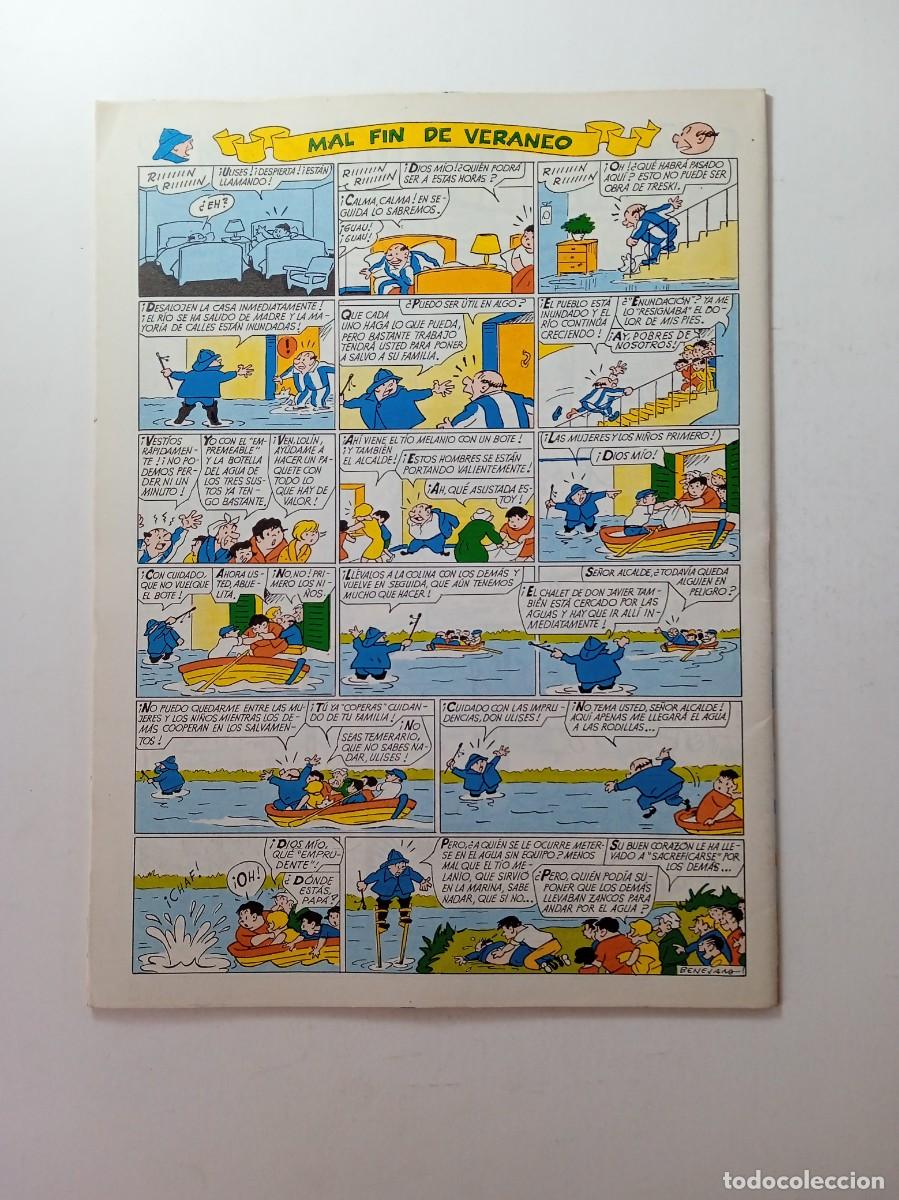 MAL FIN DE VERANEO
RIIIIIIN
RIIIIIIN
¡ULISES! ¡DESPIERTA! ¡ESTÁN
LLAMANDO!
¿EH?
RIIIIIIN
RIIIIIIN
¡DIOS MÍO! ¿QUIÉN PODRÁ
SER A ESTAS HORAS?
¡CALMA, CALMA! EN SE-
GUIDA LO SABREMOS.
¡GUAU!
¡GUAU!
RIIIIIIN
RIIIIIIN
¡OH! ¿QUÉ HABRÁ PASADO
AQUÍ? ESTO NO PUEDE SER
OBRA DE TRESKI.
¡DESALOJEN LA CASA INMEDIATAMENTE!
¡EL RÍO SE HA SALIDO DE MADRE Y LA MA-
YORÍA DE CALLES ESTÁN INUNDADAS!
¿PUEDO SER ÚTIL EN ALGO?
QUE CADA
UNO HAGA LO QUE PUEDA,
PERO BASTANTE TRABAJO
TENDRÁ USTED PARA PONER
A SALVO A SU FAMILIA.
¡EL PUEBLO ESTÁ
INUNDADO Y EL
RÍO CONTINÚA
CRECIENDO!
¿"ENUNDACIÓN"? YA ME
LO "RESIGNABA" EL DO-
LOR DE MIS PIES.
¡AY, POBRES DE
NOSOTROS!
¡VESTÍOS
RÁPIDAMEN-
TE! ¡NO PO-
DEMOS PER-
DER NI UN
MINUTO!
YO CON EL "EM-
PREMEABLE" Y
LA BOTELLA
DEL AGUA DE
LOS TRES SUS-
TOS YA TEN-
GO BASTANTE.
¡VEN, LOLÍN,
AYÚDAME A
HACER UN PA-
QUETE CON
TODO LO
QUE HAY DE
VALOR!
¡AHÍ VIENE EL TÍO MELANIO CON UN BOTE!
¡Y TAMBIÉN
EL ALCALDE!
¡ESTOS HOMBRES SE ESTÁN
PORTANDO VALIENTEMENTE!
¡AH, QUÉ ASUSTADA ES-
TOY!
¡LAS MUJERES Y LOS NIÑOS PRIMERO!
¡DIOS MÍO!
¡CON CUIDADO,
QUE NO VUELQUE
EL BOTE!
AHORA US-
TED, ABUE-
LITA.
¡NO, NO! PRI-
MERO LOS NI-
ÑOS.
¡LLÉVALOS A LA COLINA CON LOS DEMÁS Y
VUELVE EN SEGUIDA, QUE AÚN TENEMOS
MUCHO QUE HACER!
SEÑOR ALCALDE, ¿TODAVÍA QUEDA
ALGUIEN EN
PELIGRO?
¡EL CHALET DE DON JAVIER TAM-
BIÉN ESTÁ CERCADO POR LAS
AGUAS Y HAY QUE IR ALLÍ IN-
MEDIATAMENTE!
¡NO PUEDO QUEDARME ENTRE LAS MU-
JERES Y LOS NIÑOS MIENTRAS LOS DE-
MÁS COOPERAN EN LOS SALVAMEN-
TOS!
¡TÚ YA "COPERAS" CUIDAN-
DO DE TU FAMILIA!
¡NO
SEAS TEMERARIO,
QUE NO SABES NA-
DAR, ULISES!
¡CUIDADO CON LAS IMPRU-
DENCIAS, DON ULISES!
¡NO TEMA USTED, SEÑOR ALCALDE!
AQUÍ APENAS ME LLEGARÁ EL AGUA
A LAS RODILLAS...
¡CHAF!
¡OH!
¡DIOS MÍO,
QUÉ "EMPRU-
DENTE"!
¿DÓNDE
ESTÁS,
PAPÁ?
PERO, ¿A QUIÉN SE LE OCURRE METER-
SE EN EL AGUA SIN EQUIPO? MENOS
MAL QUE EL TÍO ME-
LANIO, QUE SIRVIÓ
EN LA MARINA, SABE
NADAR, QUE SI NO...
¿PERO, QUIÉN PODÍA SU-
PONER QUE LOS DEMÁS
LLEVABAN ZANCOS PARA
ANDAR POR EL AGUA?
SU BUEN CORAZÓN LE HA LLE-
VADO A "SACREFICARSE" POR
LOS DEMÁS...
BENEJAM
todocoleccion